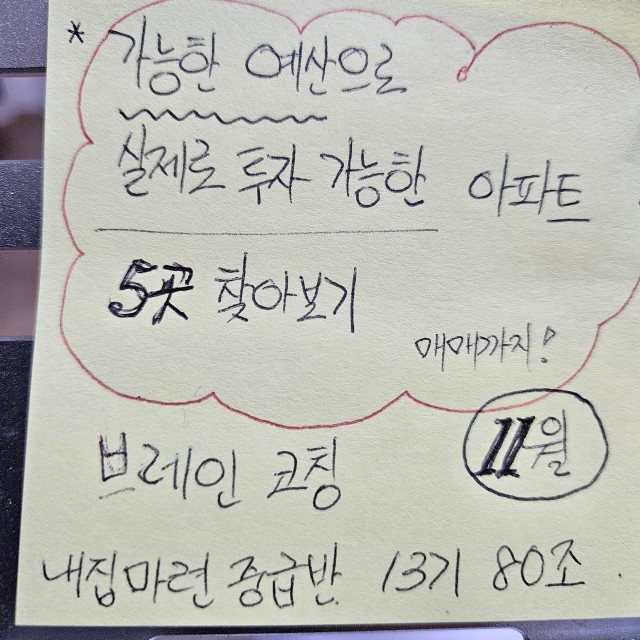 * 가능한 예산으로
실제로 투자 가능한 아파트
5곳 찾아보기
매매까지!
11월
브레인 코칭
내집마련 중급반 13기 80조.